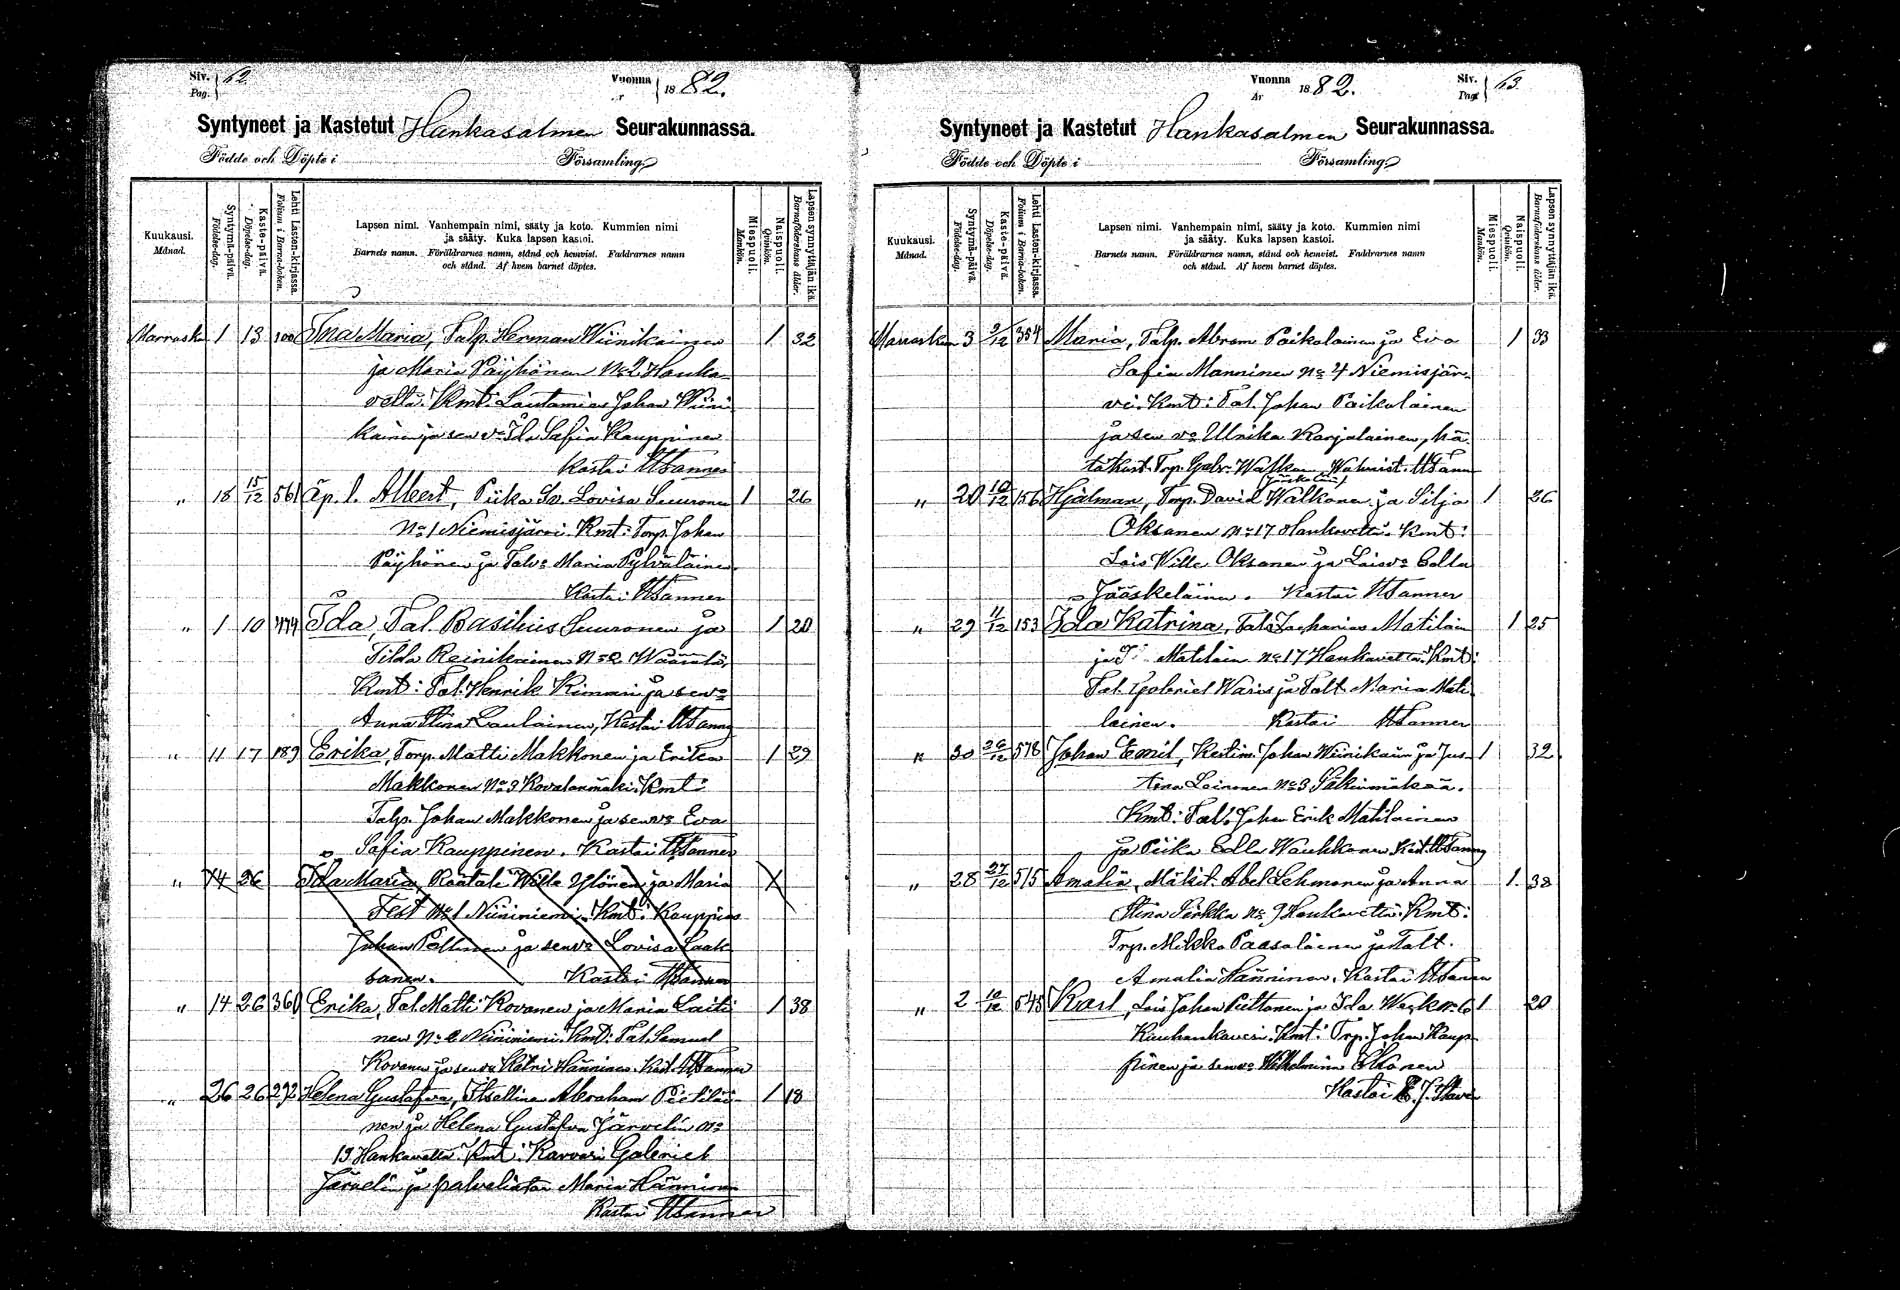 Siv. Pag. } 62.
Vuonna 1882.
Syntyneet ja Kastetut Hankasalmen Seurakunnassa.
Födde och Döpte i Församling.
Kuukausi. Månad.
Syntymä-päivä. Födelse-dag.
Kaste-päivä. Döpelse-dag.
Lehti Lasten-kirjassa. Folium i Barna-boken.
Lapsen nimi. Vanhempain nimi, sääty ja koto. Kummien nimi
ja sääty. Kuka lapsen kastoi.
Barnets namn. Föräldrarnes namn, stånd och hemvist. Faddrarnes namn
och stånd. Af hvem barnet döptes.
Miespuoli. Mankön.
Naispuoli. Qvinkön.
Lapsen synnyttäjän ikä. Barnaföderskans ålder.
Marrask 1 13 100 Ina Maria, Talp. Herman Wiinikainen 1 32
ja Maria Päyhönen No 2 Hanka-
vettä. Kmt: Lautamies Johan Wiini
kainen ja sen vo Ida Sofia Kauppinen
Kastoi
" 18 15/12 561 Äp. l. Albert, Piika Lovisa Suuronen 1 26
No 1 Niemisjärvi. Kmt: Torp. Johan
Päyhönen ja Talvo Maria Pylväläinen.
Kastoi
" 1 10 474 Ida, Tal. Basilius Suuronen ja 1 20
Tilda Reinikainen No 2
Kmt: Tal. Henrik Kinnari ja senvo
Anna Stina Laulainen, Kastoi
" 11 17 189 Erika, Torp. Matti Makkonen ja Erika 1 29
Makkonen No 3 Kovalanmäki. Kmt:
Talp. Johan Makkonen ja senvo Eva
Sofia Kauppinen. Kastoi
" 14 26 Ida Maria, Räätäli Wille Ylönen ja Maria
Fest No 1 Niininiemi. Kmt: Kauppias
Johan Pellinen ja senvo Lovisa Laak
sanen. Kastoi
" 14 26 360 Erika, Tal. Matti Kovanen ja Maria Laiti 1 38
nen No 2 Niininiemi. Kmt: Tal. Samuel
Kovanen ja senvo Katri Hänninen. Kast.
" 26 26 292 Helena Gustafva, Itsellinen Abraham Piitiläi 1 18
nen ja Helena Gustafva Järvelin No
19 Hankavettä. Kmt: Karvari Gabriel
Järvelin ja palvelijatar Maria Hänninen
Kastoi
Vuonna År 1882.
Siv. Pag. } 63.
Syntyneet ja Kastetut Hankasalmen Seurakunnassa.
Födde och Döpte i Församling.
Kuukausi. Månad.
Syntymä-päivä. Födelse-dag.
Kaste-päivä. Döpelse-dag.
Lehti Lasten-kirjassa. Folium i Barna-boken.
Lapsen nimi. Vanhempain nimi, sääty ja koto. Kummien nimi
ja sääty. Kuka lapsen kastoi.
Barnets namn. Föräldrarnes namn, stånd och hemvist. Faddrarnes namn
och stånd. Af hvem barnet döptes.
Miespuoli. Mankön.
Naispuoli. Qvinkön.
Lapsen synnyttäjän ikä. Barnaföderskans ålder.
Marraskun 3 9/12 354 Maria, Talp. Abram Paikolainen ja Eva 1 33
Sofia Manninen No 4 Niemisjär-
vi. Kmt: Tal. Johan Paikolainen
ja sen vo Ulrika Karjalainen, hä
täkast. Trp. Gabr.
" 20 10/12 156 Hjalmar, Torp. David Walkonen ja Silja 1 26
Oksanen No 17 Hankavettä. Kmt:
Lois Wille Oksanen ja Loisvo Edla
Jääskeläinen. Kastoi
" 29 11/12 153 Ida Katrina, Zacharias Matilain 1 25
ja Matilain No 17 Hankavettä. Kmt:
Tal. Gabriel Waris ja Talt. Maria Mati
lainen. Kastoi
" 30 26/12 578 Johan Emil, Kestim. Johan Wiinikain ja Jus- 1 32
tina Leinonen No 3 Säkinmäkeä.
Kmt: Johan Erik Matilainen
ja Piika Edla Kast.
" 28 27/12 515 Amalia, Mäkit. Abel Lehmonen ja Anna 1. 38
Stina Pirkka No 9 Hankavettä. Kmt:
Trp. Mikko Paasolainen ja Talt.
Amalia Hänninen. Kastoi
" 2 10/12 545 Karl, Lois Johan Piittonen ja Ida No 6 1 20
Kauhankavesi. Kmt: Trp. Johan Kaup-
pinen ja senvo Wilhelmiina
Kastoi